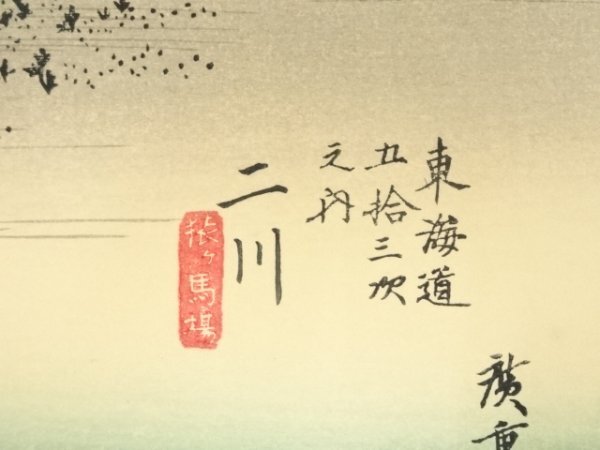 東海道
五拾三次
之内
二川
猿ヶ馬場
廣重